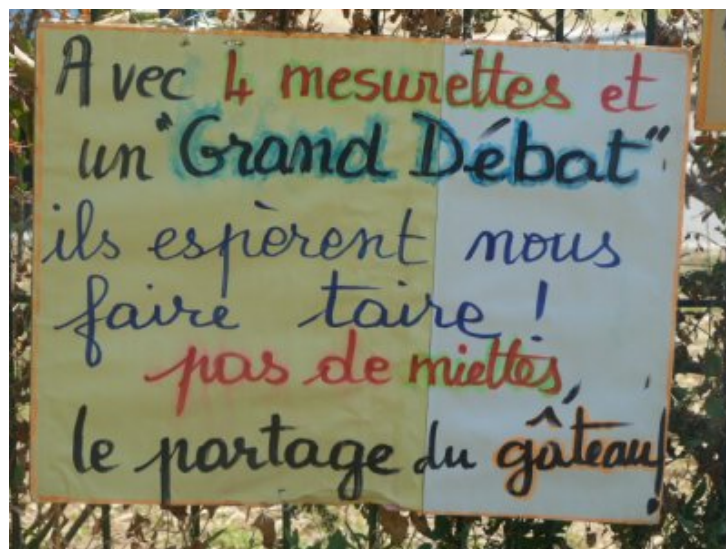 Avec 4 mesurettes et
un "Grand Débat"
ils espèrent nous
faire taire !
pas de miettes,
le partage du gâteau!